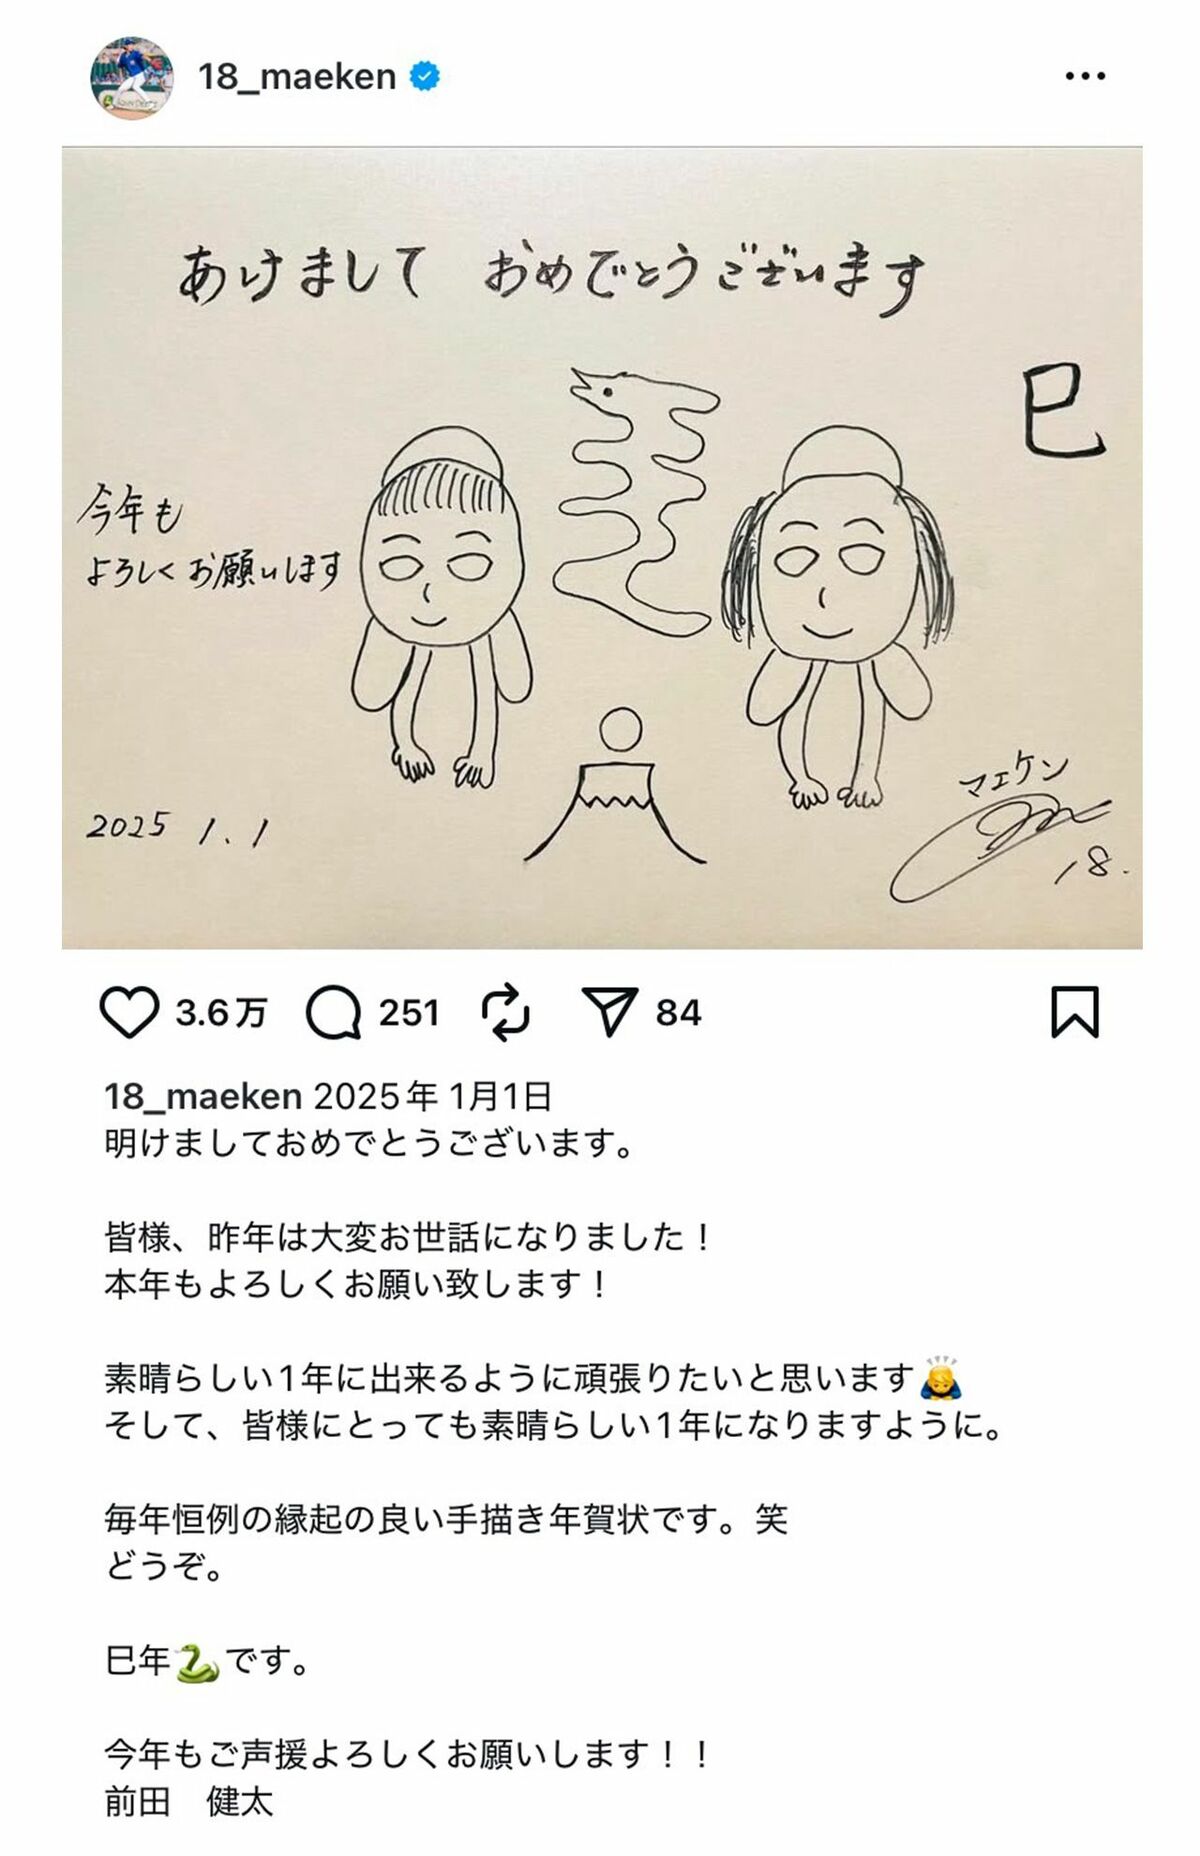 18_maeken
あけまして おめでとうございます
巳
今年も
よろしくお願いします
2025 1.1
マエケン
18.
3.6万 251 84
18_maeken 2025年 1月1日
明けましておめでとうございます。
皆様、昨年は大変お世話になりました！
本年もよろしくお願い致します！
素晴らしい1年に出来るように頑張りたいと思います🙇
そして、皆様にとっても素晴らしい1年になりますように。
毎年恒例の縁起の良い手描き年賀状です。笑
どうぞ。
巳年🐍です。
今年もご声援よろしくお願いします！！
前田　健太